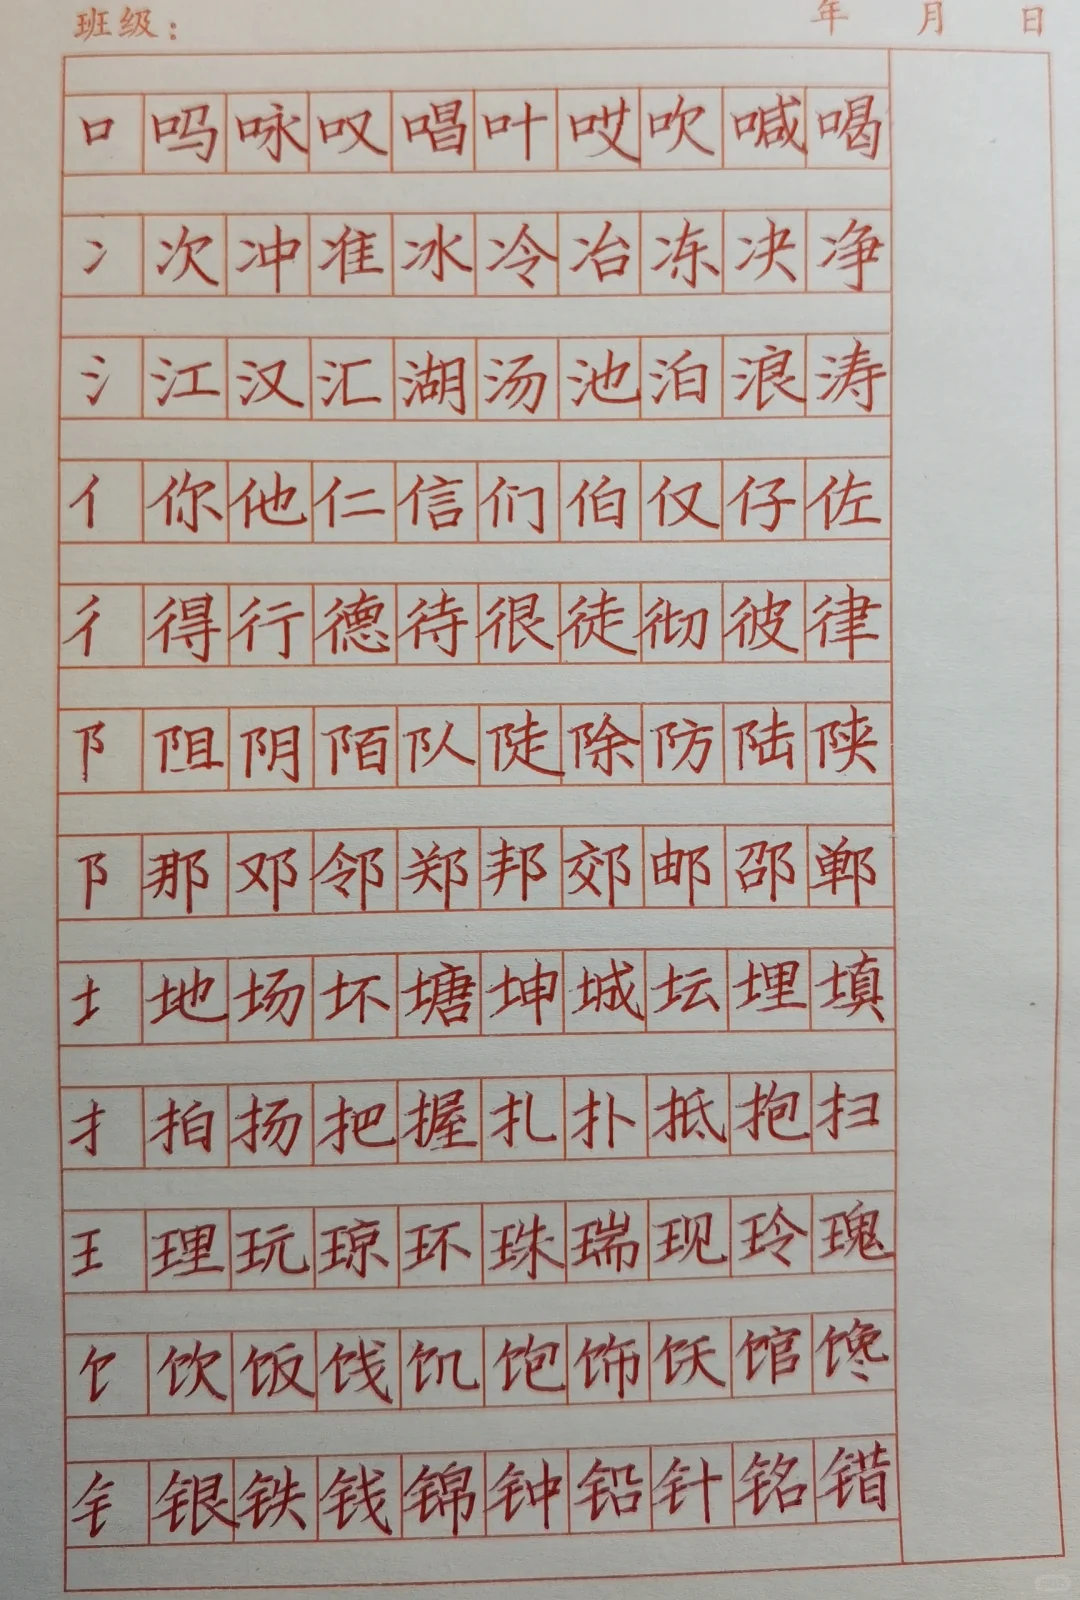 班级： 年 月 日
口 吗 咏 叹 唱 叶 哎 吹 喊 喝
冫 次 冲 准 冰 冷 冶 冻 决 净
氵 江 汉 汇 湖 汤 池 泊 浪 涛
亻 你 他 仁 信 们 伯 仅 仔 佐
彳 得 行 德 待 很 徒 彻 彼 律
阝 阻 阴 陌 队 陡 除 防 陆 陕
阝 那 邓 邻 郑 邦 郊 邮 邵 郸
土 地 场 坏 塘 坤 城 坛 埋 填
扌 拍 扬 把 握 扎 扑 抵 抱 扫
王 理 玩 琼 环 珠 瑞 现 玲 瑰
饣 饮 饭 饯 饥 饱 饰 饫 馆 馋
钅 银 铁 钱 锦 钟 铅 针 铭 错